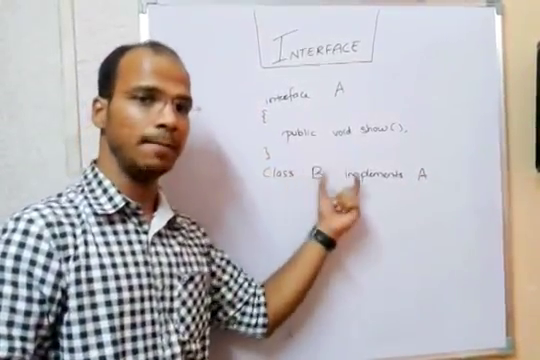 INTERFACE
interface A
{
public void show();
}
Class B implements A